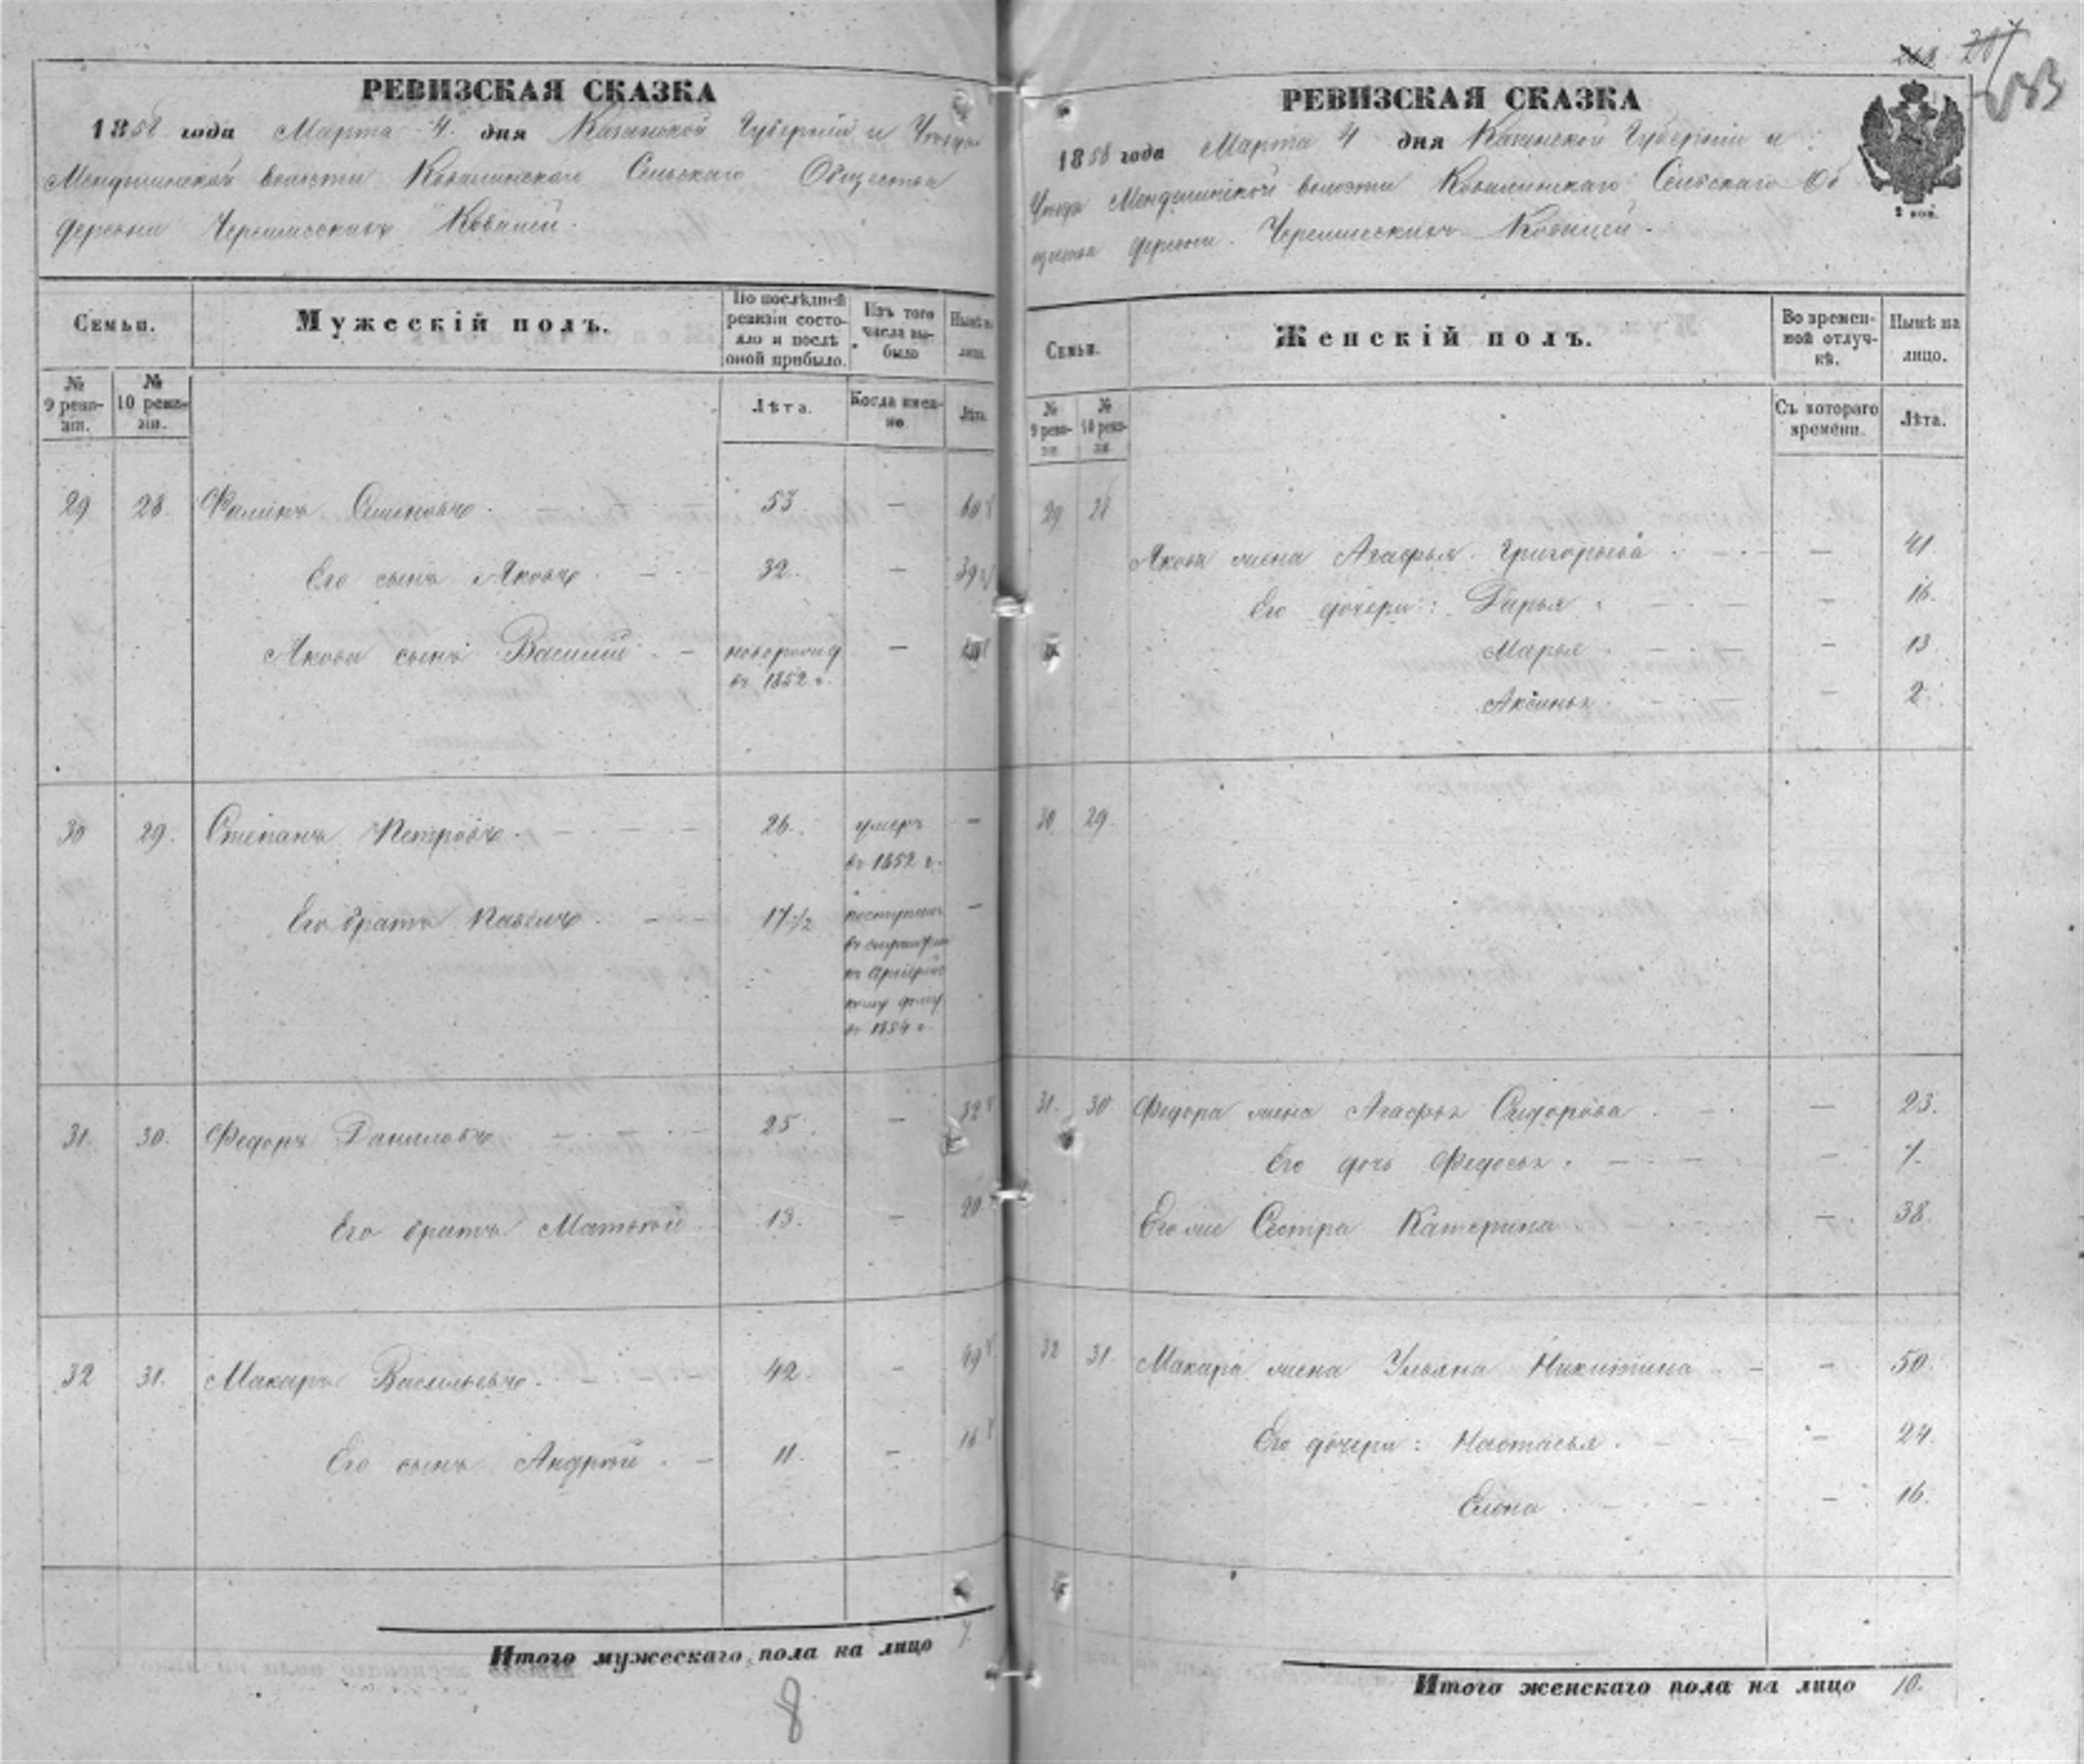 РЕВИЗСКАЯ СКАЗКА
1858 года Марта 4. дня Казанской Губерніи и Уезда
волости Ковалинскаго Сельскаго Общества
деревни Черемисскихъ Ковалей.
Семьи.
Мужескій полъ.
По послѣдней ревизіи состояло и послѣ оной прибыло.
Изъ того числа выбыло
Нынѣ на лицо.
№ 9 ревизіи.
№ 10 ревизіи.
Лѣта.
Когда именно.
Лѣта.
29 28 Семеновъ 53 — 60
Его сынъ Яковъ 32 — 39
Якова сынъ Василій новорожд —
въ 1852 г.
30 29. Степанъ Петровъ 26. умеръ —
въ 1852 г.
Его братъ Павелъ 17 1/2 поступилъ —
въ
къ
дому
въ 1854 г.
31. 30. Федоръ Даниловъ 25 — 32
Его братъ Матвей 13. — 20
32 31. Макаръ Васильевъ 42. — 49
Его сынъ Андрей 11. —
Итого мужескаго пола на лицо 7.
8
РЕВИЗСКАЯ СКАЗКА
1858 года Марта 4 дня Казанской Губерніи и
Уезда волости Ковалинскаго Сельскаго Об
щества деревни Черемисскихъ Ковалей.
2 коп.
Семьи.
Женскій полъ.
Во временной отлучкѣ.
Нынѣ на лицо.
№ 9 ревизіи
№ 10 ревизіи
Съ котораго времени.
Лѣта.
29 28
Якова жена Агафья Григорьева — 41
Его дочери: Дарья — 16.
Марья — 13
Аксинья — 2
30 29.
31. 30 Федора жена Агафья Сидорова — 23.
Его дочь Федосья —
Его же Сестра Катерина — 38.
32 31. Макара жена Ульяна Никитина — 50.
Его дочери: Настасья — 24.
Елена — 16.
Итого женскаго пола на лицо 10.